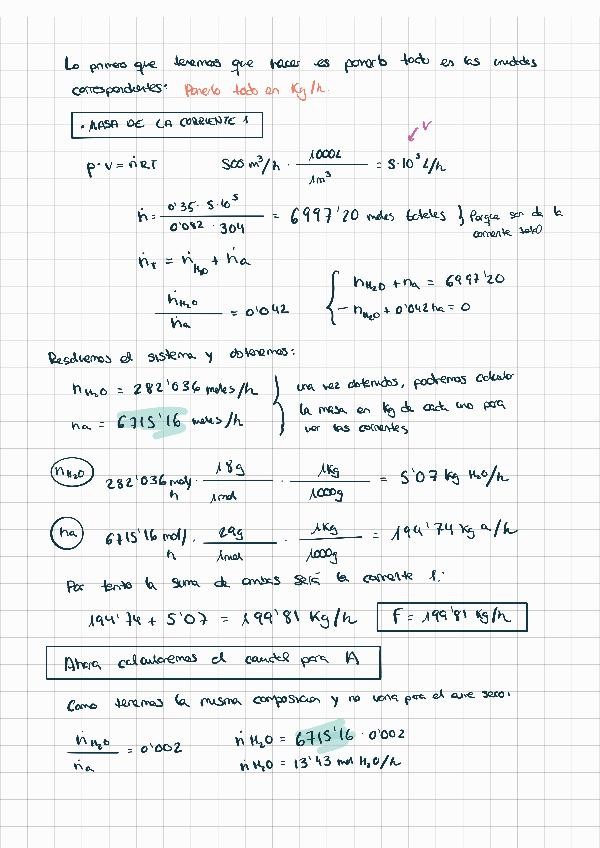 Lo primero que tenemos que hacer es ponerlo todo en las unidades
correspondientes: Ponerlo todo en Kg/h.
· MASA DE LA CORRIENTE 1
V
P·V = ṅRT 500 m³/h · 1000L / 1m³ = 5·10⁵ L/h
ṅ = 0'35 · 5·10⁵ / 0'082 · 304 = 6997'20 moles totales } Porque son de la
corriente total
ṅT = ṅH₂O + ṅa
ṅH₂O / ṅa = 0'042
{ nH₂O + na = 6997'20
- nH₂O + 0'042 na = 0
Resolvemos el sistema y obtenemos:
nH₂O = 282'036 moles/h
na = 6715'16 moles/h
} una vez obtenidos, podremos calcular
la masa en kg de cada uno para
ver las corrientes
nH₂O 282'036 mol/h · 18g / 1mol · 1Kg / 1000g = 5'07 kg H₂O/h
na 6715'16 mol/h · 29g / 1mol · 1Kg / 1000g = 194'74 kg a/h
Por tanto la suma de ambas será la corriente 1:
194'74 + 5'07 = 199'81 Kg/h F = 199'81 kg/h
Ahora calcularemos el caudal para A
Como tenemos la misma composición y no varía para el aire seco:
ṅH₂O / ṅa = 0'002
ṅH₂O = 6715'16 · 0'002
ṅH₂O = 13'43 mol H₂O/h